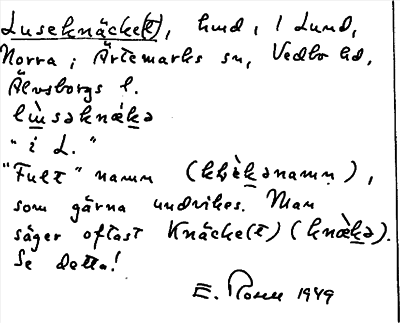 Luseknäcke(t), hmd, i Lund,
Norra i Ärtemarks sn, Vedbo hd,
Älvsborgs l.
lẁsəknækə
"i L."
"Fult" namn (
som gärna undvikes. Man
säger oftast Knäcke(t) (knækə).
Se detta!
E. Rosell 1949